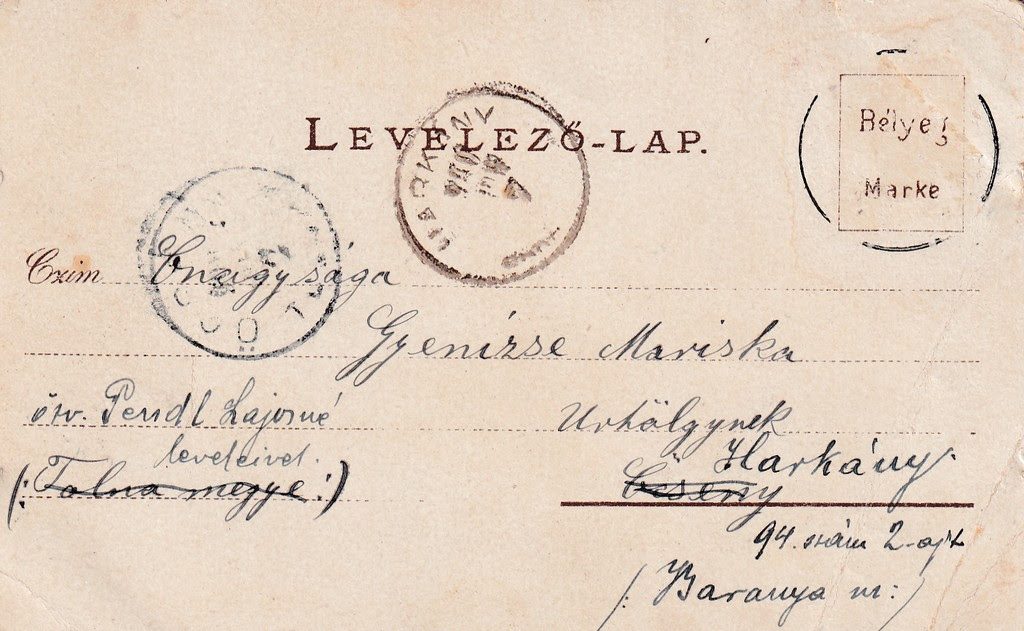 LEVELEZŐ-LAP.
Bélyeg
Marke
HARKÁNY
Czim Önagysága
Gyenizse Mariska
özv. Pendl Lajosné
Urhölgynek
leveleivel.
Harkány.
(: Tolna megye :)
94. szám 2-ajt
(Baranya m:)